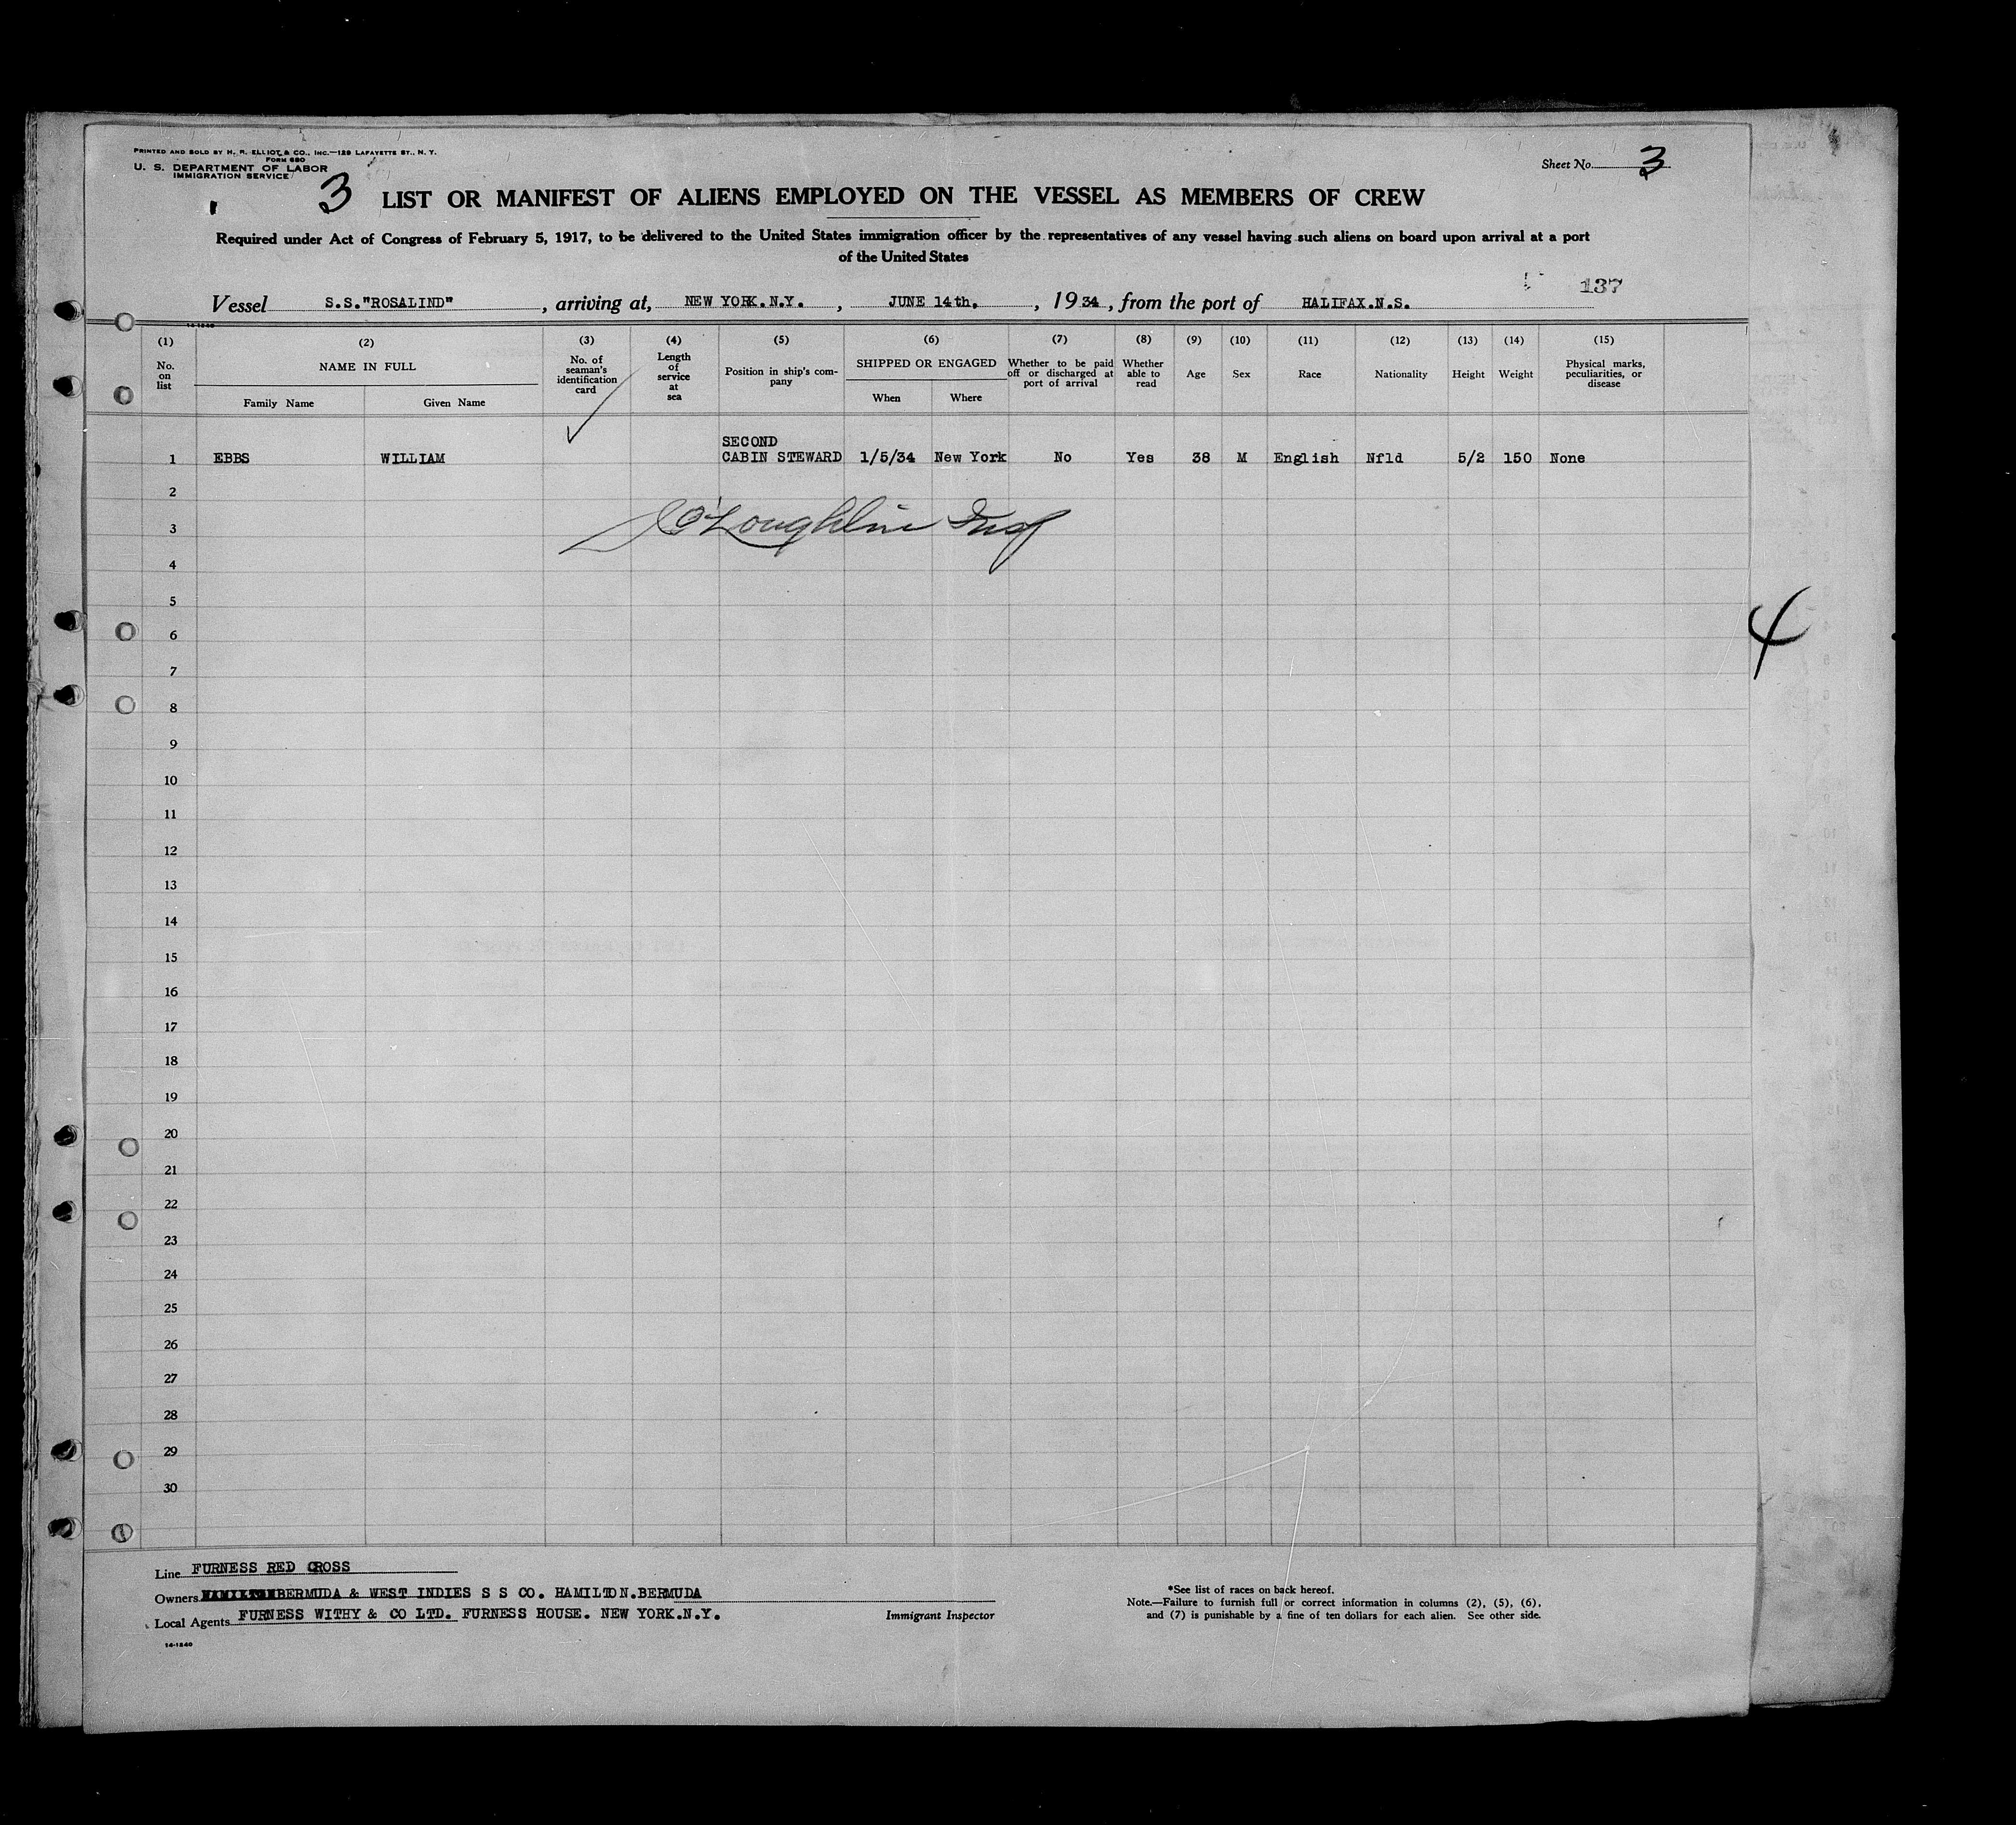 PRINTED AND SOLD BY H. R. ELLIOT & CO., INC.—129 LAFAYETTE ST., N. Y.
FORM 680
U. S. DEPARTMENT OF LABOR
IMMIGRATION SERVICE
Sheet No. 3
3 LIST OR MANIFEST OF ALIENS EMPLOYED ON THE VESSEL AS MEMBERS OF CREW
Required under Act of Congress of February 5, 1917, to be delivered to the United States immigration officer by the representatives of any vessel having such aliens on board upon arrival at a port
of the United States
137
Vessel S.S."ROSALIND", arriving at, NEW YORK.N.Y., JUNE 14th., 1934, from the port of HALIFAX.N.S.
14-1240
(1) No. on list
(2) NAME IN FULL
Family Name
Given Name
(3) No. of seaman's identification card
(4) Length of service at sea
(5) Position in ship's company
(6) SHIPPED OR ENGAGED
When
Where
(7) Whether to be paid off or discharged at port of arrival
(8) Whether able to read
(9) Age
(10) Sex
(11) Race
(12) Nationality
(13) Height
(14) Weight
(15) Physical marks, peculiarities, or disease
1 EBBS WILLIAM SECOND CABIN STEWARD 1/5/34 New York No Yes 38 M English Nfld 5/2 150 None
2
O'Loughlin Insp
3
4
5
4
6
7
8
9
10
11
12
13
14
15
16
17
18
19
20
21
22
23
24
25
26
27
28
29
30
Line FURNESS RED CROSS
Owners BERMUDA & WEST INDIES S S CO. HAMILTON.BERMUDA
Local Agents FURNESS WITHY & CO LTD. FURNESS HOUSE. NEW YORK.N.Y.
14-1240
Immigrant Inspector
*See list of races on back hereof.
Note.—Failure to furnish full or correct information in columns (2), (5), (6),
and (7) is punishable by a fine of ten dollars for each alien. See other side.